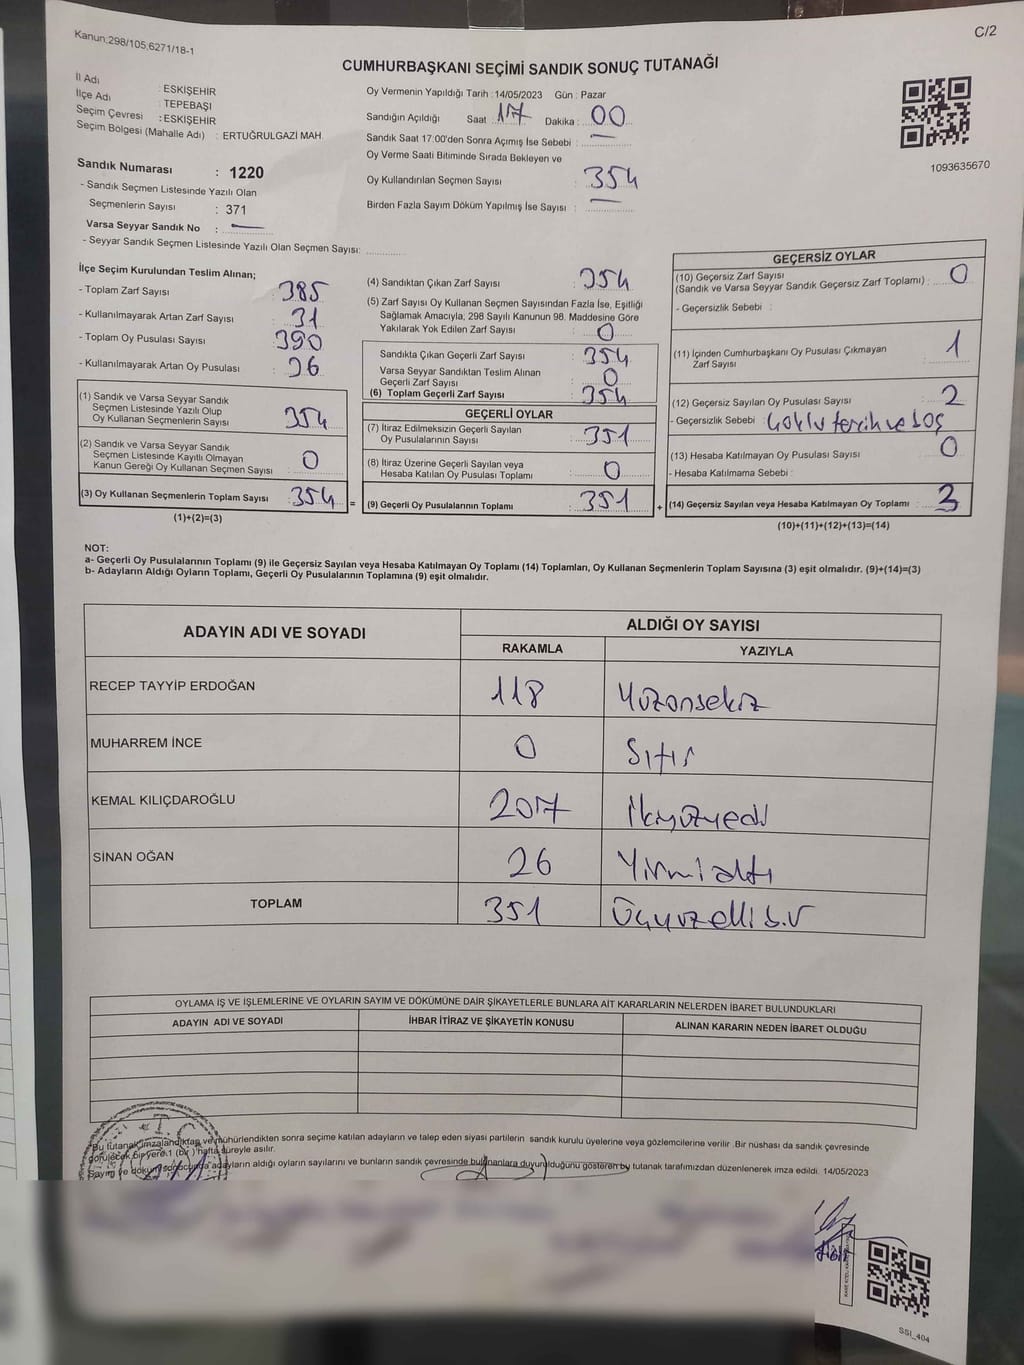 Kanun:298/105,6271/18-1
C/2
CUMHURBAŞKANI SEÇİMİ SANDIK SONUÇ TUTANAĞI
İl Adı : ESKİŞEHİR
İlçe Adı : TEPEBAŞI
Seçim Çevresi : ESKİŞEHİR
Seçim Bölgesi (Mahalle Adı) : ERTUĞRULGAZİ MAH.
Sandık Numarası : 1220
- Sandık Seçmen Listesinde Yazılı Olan
Seçmenlerin Sayısı : 371
Varsa Seyyar Sandık No : —
- Seyyar Sandık Seçmen Listesinde Yazılı Olan Seçmen Sayısı: ............
Oy Vermenin Yapıldığı Tarih : 14/05/2023 Gün : Pazar
Sandığın Açıldığı Saat : 17 Dakika : 00
Sandık Saat 17:00'den Sonra Açımış İse Sebebi : —
Oy Verme Saati Bitiminde Sırada Bekleyen ve
Oy Kullandırılan Seçmen Sayısı : 354
Birden Fazla Sayım Döküm Yapılmış İse Sayısı : —
1093635670
İlçe Seçim Kurulundan Teslim Alınan;
- Toplam Zarf Sayısı : 385
- Kullanılmayarak Artan Zarf Sayısı : 31
- Toplam Oy Pusulası Sayısı : 390
- Kullanılmayarak Artan Oy Pusulası : 36
(1) Sandık ve Varsa Seyyar Sandık
Seçmen Listesinde Yazılı Olup
Oy Kullanan Seçmenlerin Sayısı : 354
(2) Sandık ve Varsa Seyyar Sandık
Seçmen Listesinde Kayıtlı Olmayan
Kanun Gereği Oy Kullanan Seçmen Sayısı : 0
(3) Oy Kullanan Seçmenlerin Toplam Sayısı : 354 =
(1)+(2)=(3)
(4) Sandıktan Çıkan Zarf Sayısı : 354
(5) Zarf Sayısı Oy Kullanan Seçmen Sayısından Fazla İse, Eşitliği
Sağlamak Amacıyla, 298 Sayılı Kanunun 98. Maddesine Göre
Yakılarak Yok Edilen Zarf Sayısı : 0
Sandıkta Çıkan Geçerli Zarf Sayısı : 354
Varsa Seyyar Sandıktan Teslim Alınan
Geçerli Zarf Sayısı : 0
(6) Toplam Geçerli Zarf Sayısı : 354
GEÇERLİ OYLAR
(7) İtiraz Edilmeksizin Geçerli Sayılan
Oy Pusulalarının Sayısı : 351
(8) İtiraz Üzerine Geçerli Sayılan veya
Hesaba Katılan Oy Pusulası Toplamı : 0
(9) Geçerli Oy Pusulalarının Toplamı : 351 +
GEÇERSİZ OYLAR
(10) Geçersiz Zarf Sayısı
(Sandık ve Varsa Seyyar Sandık Geçersiz Zarf Toplamı) : 0
- Geçersizlik Sebebi :
(11) İçinden Cumhurbaşkanı Oy Pusulası Çıkmayan
Zarf Sayısı : 1
(12) Geçersiz Sayılan Oy Pusulası Sayısı : 2
- Geçersizlik Sebebi : Çoklu tercih ve boş
(13) Hesaba Katılmayan Oy Pusulası Sayısı : 0
- Hesaba Katılmama Sebebi :
(14) Geçersiz Sayılan veya Hesaba Katılmayan Oy Toplamı : 3
(10)+(11)+(12)+(13)=(14)
NOT:
a- Geçerli Oy Pusulalarının Toplamı (9) ile Geçersiz Sayılan veya Hesaba Katılmayan Oy Toplamı (14) Toplamları, Oy Kullanan Seçmenlerin Toplam Sayısına (3) eşit olmalıdır. (9)+(14)=(3)
b- Adayların Aldığı Oyların Toplamı, Geçerli Oy Pusulalarının Toplamına (9) eşit olmalıdır.
ADAYIN ADI VE SOYADI ALDIĞI OY SAYISI
RAKAMLA YAZIYLA
RECEP TAYYİP ERDOĞAN 118 Yüzonsekiz
MUHARREM İNCE 0 Sıfır
KEMAL KILIÇDAROĞLU 207 İkiyüzyedi
SİNAN OĞAN 26 Yirmialtı
TOPLAM 351 Üçyüzellibir
OYLAMA İŞ VE İŞLEMLERİNE VE OYLARIN SAYIM VE DÖKÜMÜNE DAİR ŞİKAYETLERLE BUNLARA AİT KARARLARIN NELERDEN İBARET BULUNDUKLARI
ADAYIN ADI VE SOYADI İHBAR İTİRAZ VE ŞİKAYETİN KONUSU ALINAN KARARIN NEDEN İBARET OLDUĞU
Bu tutanak imzalandıktan ve mühürlendikten sonra seçime katılan adayların ve talep eden siyasi partilerin sandık kurulu üyelerine veya gözlemcilerine verilir. Bir nüshası da sandık çevresinde
görülecek bir yere 1 (bir) hafta süreyle asılır.
Sayım ve döküm sonucunda adayların aldığı oyların sayılarını ve bunların sandık çevresinde bulunanlara duyurulduğunu gösteren bu tutanak tarafımızdan düzenlenerek imza edildi. 14/05/2023
SSI_404